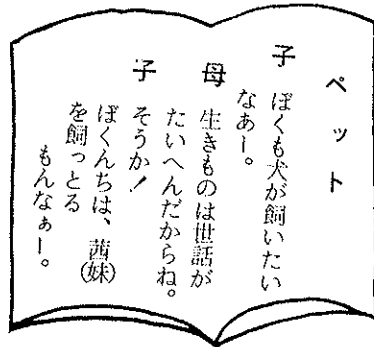 ペット
子 ぼくも犬が飼いたい
なあー。
母 生きものは世話が
たいへんだからね。
子 そうか！
ぼくんちは、茜(妹)
を飼っとる
もんなぁー。